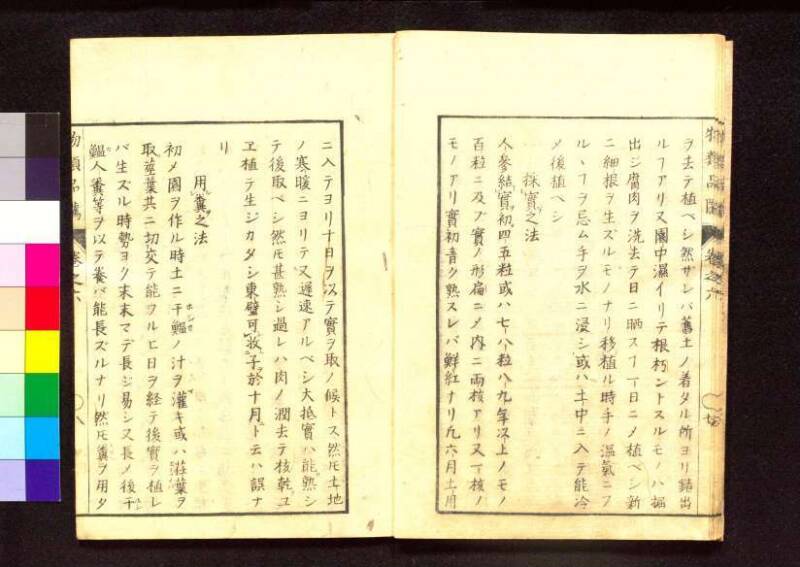 ヲ去テ植ベシ然サレバ舊土ノ着タル所ヨリ錆出
ルフアリ又園中濕イリテ根朽ントスルモノハ掘
出シ腐肉ヲ洗去テ日ニ晒スフ一日ニメ植ベシ新
ニ細根ヲ生ズルモノナリ移植ル時手ノ温氣ニフ
ルヽフヲ忌ム手ヲ水ニ浸シ或ハ土中ニ入テ能冷
メ後植ベシ
採實之法
人參結實初四五粒或ハ七八粒八九年以上ノモノ
百粒ニ及ブ實ノ形扁ニメ内ニ兩核アリ又一核ノ
モノアリ實初青ク熟スレバ鮮紅ナリ凡六月土用
ニ入テヨリ十日ヲ以テ實ヲ取ノ候トス然𪜈土地
ノ寒暖ニヨリテ又遲速アルベシ大抵實ハ能熟シ
テ後取ベシ然𪜈甚熟シ過レハ肉ノ潤去テ核乾ユ
ヱ植テ生ジカタシ東壁可收子於十月ト云ハ誤ナ
リ
用糞之法
初メ園ヲ作ル時土ニ干鰯ノ汁ヲ灌キ或ハ莖葉ヲ
取莖葉共ニ切交テ能ヲルヒ日ヲ経テ後實ヲ植レ
バ生ズル時勢ヨク末末マデ長ジ易シ又長ノ後干
鰯人糞等ヲ以テ養バ能長ズルナリ然𪜈糞ヲ用タ
物類品隲 卷之六